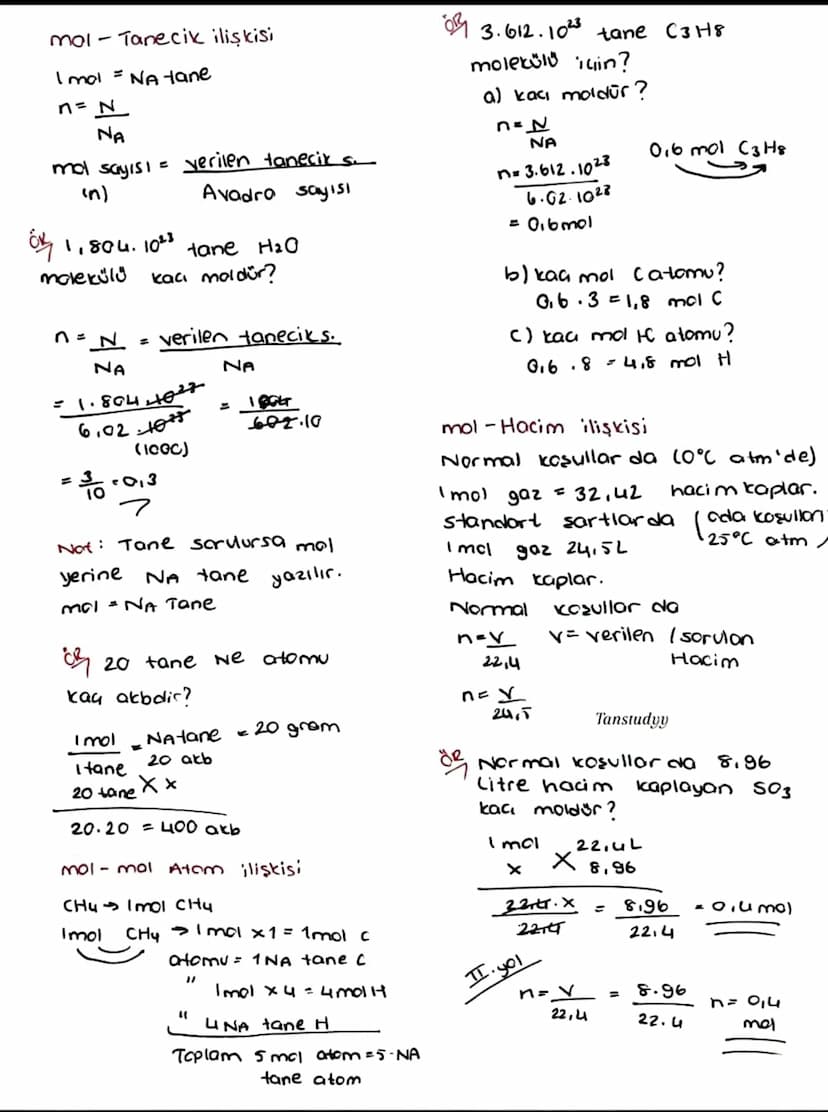 mol - Tanecik ilişkisi
1 mol = NA tane
n = N / NA
mol sayısı = verilen tanecik s. / Avadro sayısı
(n)
ÖR 1,804.10²³ tane H2O
molekülü kaçı moldür?
n = N / NA = verilen tanecik s. / NA
= 1.804.10²³ / 6,02.10²³ = 1804 / 602.10
(1000)
= 3/10 = 0,3
Not: Tane sorulursa mol
yerine NA tane yazılır.
mol = NA Tane
ÖR 20 tane Ne atomu
kaç akbdir?
1mol = NA tane = 20 gram
1 tane 20 akb
20 tane X x
20.20 = 400 akb
mol - mol Atom ilişkisi
CH4 → 1mol CH4
1mol CH4 → 1mol x1 = 1mol C
atomu = 1NA tane C
" 1mol x 4 = 4mol H
" 4NA tane H
Toplam 5 mol atom = 5.NA
tane atom
ÖR 3.612.10²³ tane C3H8
molekülü için?
a) kaçı moldür?
n = N / NA
n = 3.612.10²³ / 6.02.10²³
0,6 mol C3H8
= 0,6mol
b) kaçı mol C atomu?
0,6 . 3 = 1,8 mol C
c) kaçı mol H atomu?
0,6 . 8 = 4,8 mol H
mol - Hacim ilişkisi
Normal koşullar da (0°C atm'de)
1mol gaz = 32,42 hacim kaplar.
standart şartlarda (oda koşulları
25°C atm)
1mol gaz 24,5L
Hacim kaplar.
Normal koşullar da
n = V / 22,4 V = verilen / sorulan
Hacim
n = V / 24,5
Tanstudyy
ÖR Normal koşullar da 8,96
Litre hacim kaplayan SO3
kaçı moldür?
1mol 22,4L
x X 8,96
22,4.x / 22,4 = 8,96 / 22,4 = 0,4mol
II.yol
n = V / 22,4 = 8.96 / 22.4 n = 0,4
mol